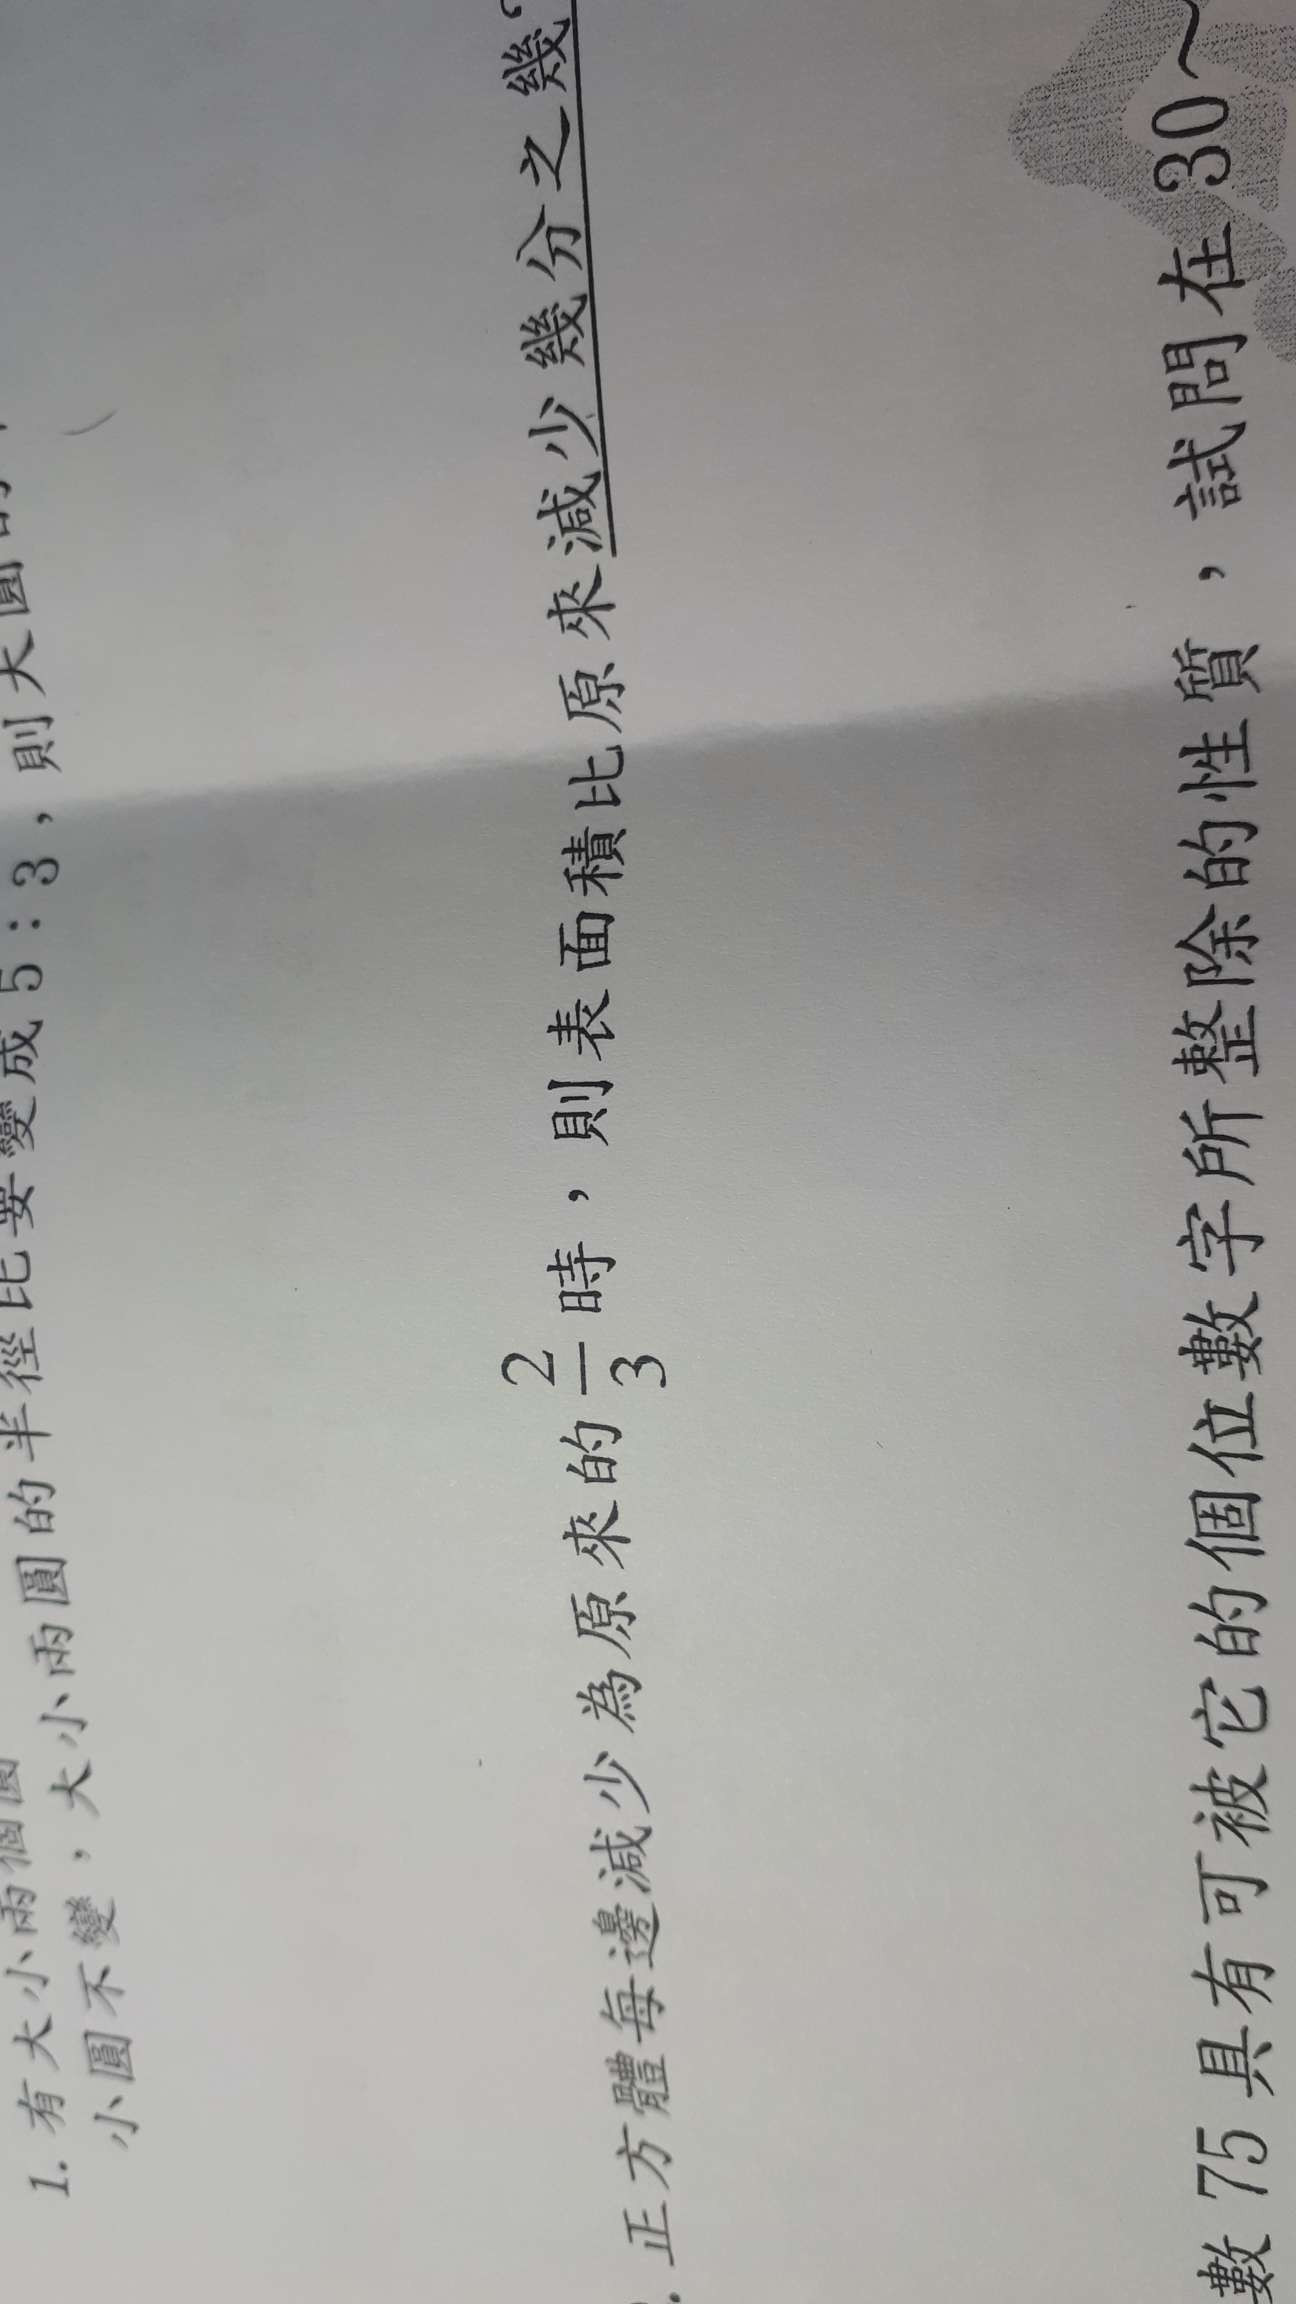 1. 有大小兩個圓
小圓不變，大小兩圓的半徑比要變成5：3，則大圓的
. 正方體每邊減少為原來的2/3時，則表面積比原來減少幾分之幾？
數 75 具有可被它的個位數字所整除的性質，試問在30～